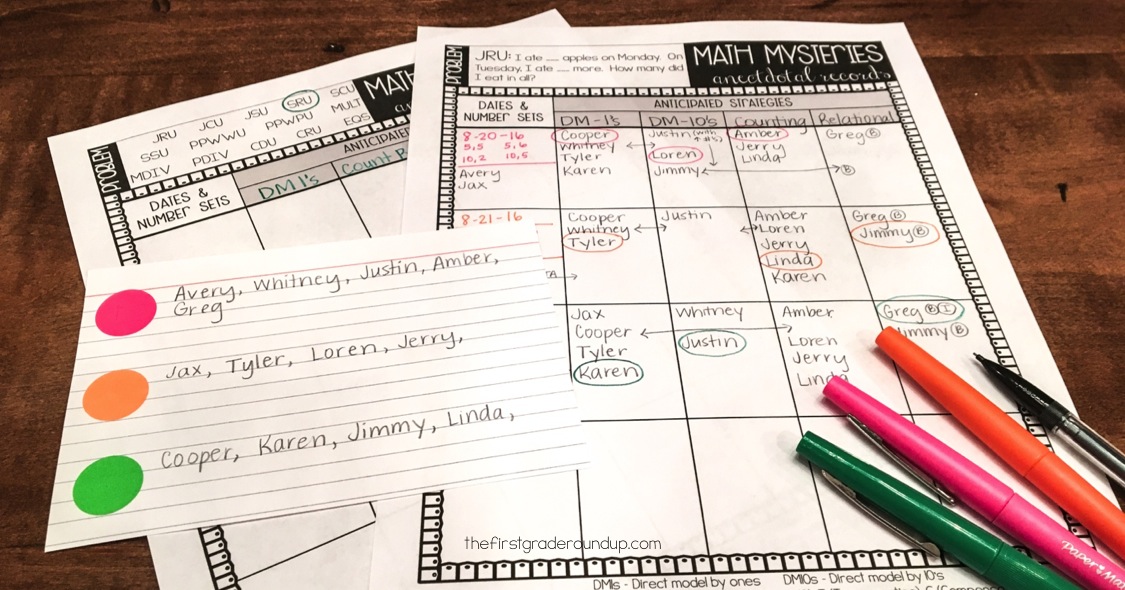 PROBLEM
JRU: I ate __ apples on Monday. On
Tuesday, I ate __ more. How many did
I eat in all?
MATH MYSTERIES
anecdotal records
DATES &
NUMBER SETS
ANTICIPATED STRATEGIES
DM-1's
DM-10's
Counting
Relational
8-20-16
5,5 5,6
10,2 10,5
Avery
Jax
Cooper
Whitney
Tyler
Karen
Justin (with
Loren
Jimmy
Amber
Jerry
Linda
Greg B
B
8-21-16
Cooper
Whitney
Tyler
Justin
Amber
Loren
Jerry
Linda
Karen
Greg B
Jimmy B
Jax
Cooper
Tyler
Karen
Whitney
Justin
Amber
Loren
Jerry
Linda
Greg B I
Jimmy B
DM1s - Direct model by ones
DM10s - Direct model by 10's
PROBLEM
JRU JCU JSU SRU SCU
SSU PPWWU PPWPU MULT
MDIV PDIV CDU CRU EQS
MATH
DATES &
NUMBER SETS
DM 1's
Count B
Avery, Whitney, Justin, Amber,
Greg
Jax, Tyler, Loren, Jerry,
Cooper, Karen, Jimmy, Linda,
Paper Ma
thefirstgraderoundup.com